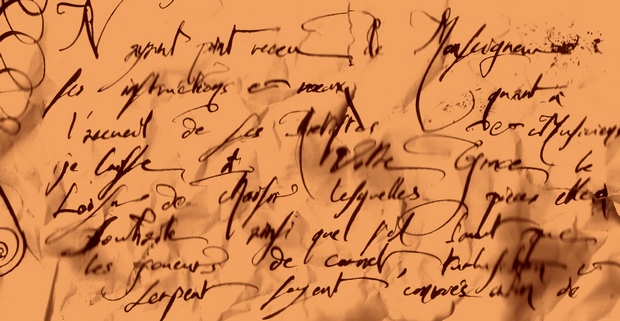 N'ayant point receu de Monseigneur
ses instructions et vœux quant à
l'accueil de ses Artistes et Musiciens
je laisse à Votre Grace le
Loisir de choisir lesquelles pièces elle
souhaite ainsi que s'il faut que
les joueurs de cornet, et
serpent soyent conviés de